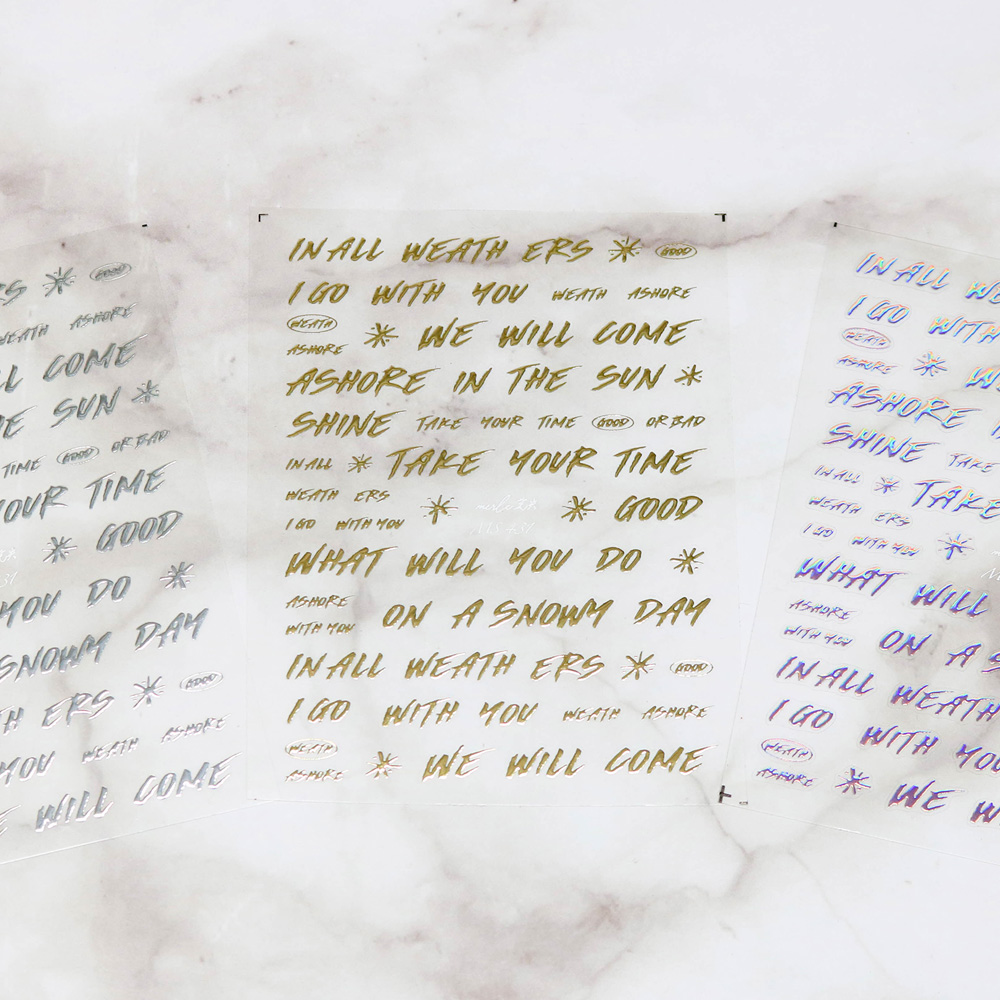 RS GOOD
WEATH ASHORE
LL COME
E SUN
TIME GOOD OR BAD
YOUR TIME
GOOD
YOU DO
SNOWY DAY
TH ERS GOOD
YOU WEATH ASHORE
E WILL COME
IN ALL WEATH ERS GOOD
I GO WITH YOU WEATH ASHORE
WEATH
ASHORE
WE WILL COME
ASHORE IN THE SUN
SHINE TAKE YOUR TIME GOOD OR BAD
IN ALL TAKE YOUR TIME
WEATH ERS
I GO WITH YOU
GOOD
WHAT WILL YOU DO
ASHORE
WITH YOU
ON A SNOWY DAY
IN ALL WEATH ERS GOOD
I GO WITH YOU WEATH ASHORE
WEATH
ASHORE
WE WILL COME
IN ALL WE
I GO WITH
WEATH
ASHORE
W
ASHORE I
SHINE TAKE
IN ALL TAKE
WEATH ERS
I GO WITH YOU
WHAT WILL
ASHORE
WITH YOU
ON A S
IN ALL WEATH
I GO WITH YOU
WEATH
ASHORE
WE W